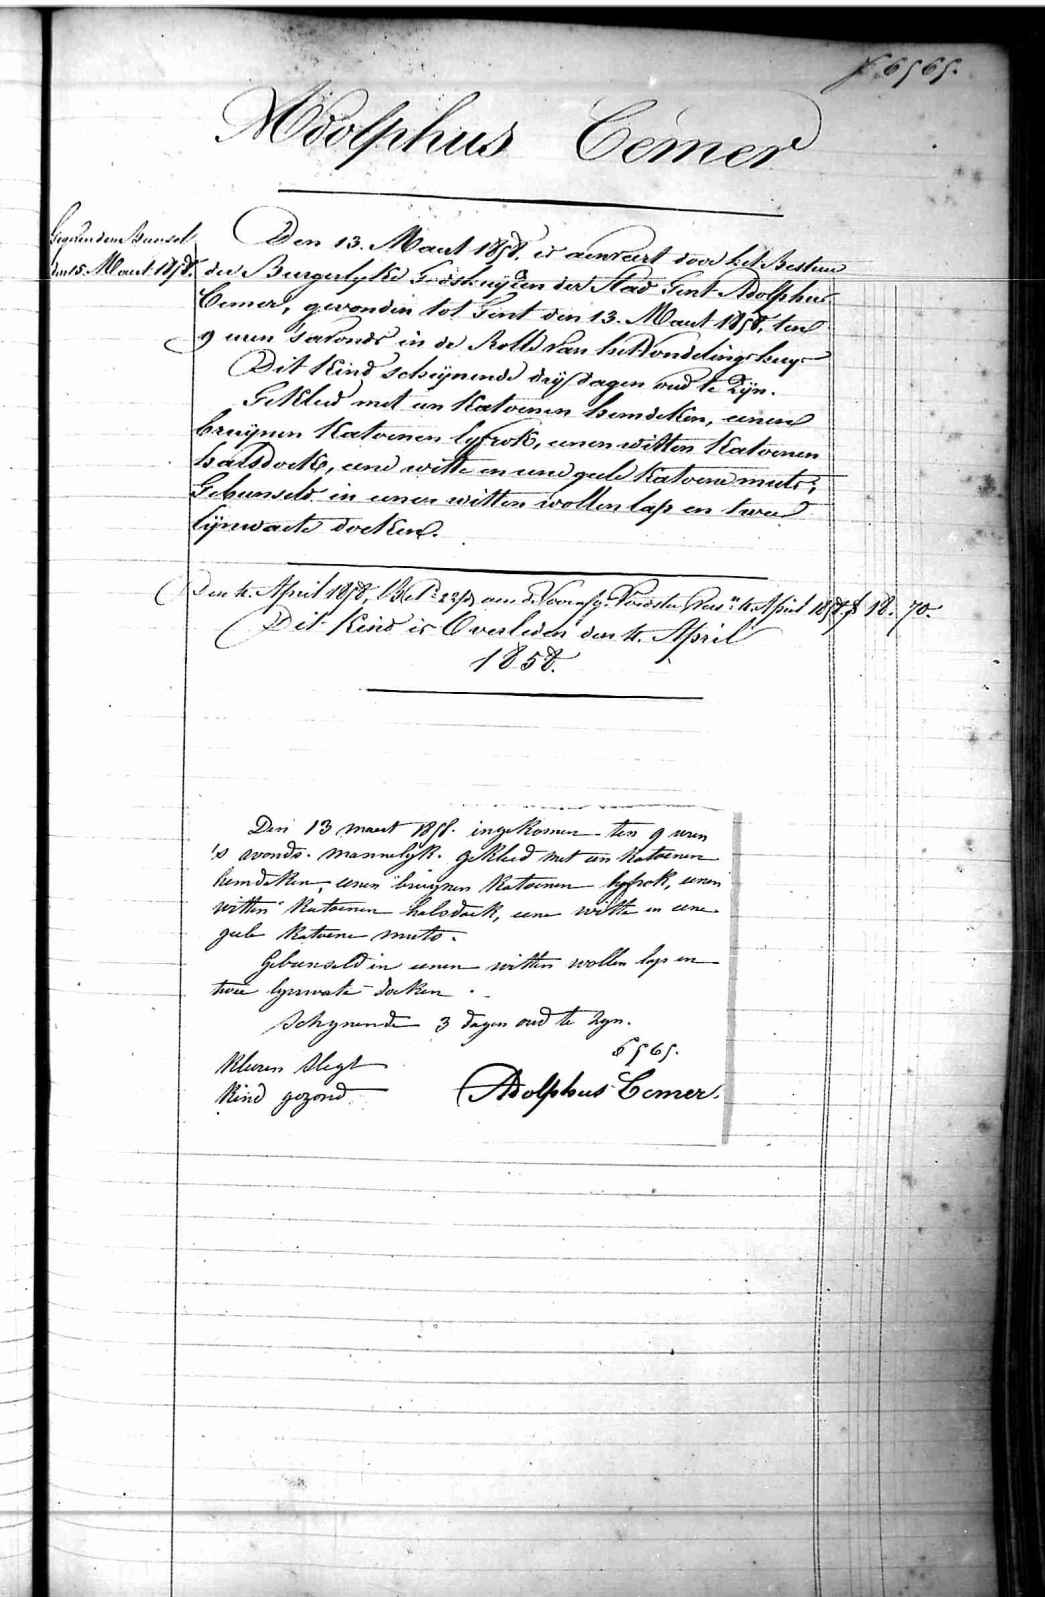 6565.
Adolphus Cemer
Gegeven den Bunsel
den 15. Maert 1858.
Den 13. Maert 1858. is aenveert door het Bestuur
der Burgerlyke Godshuyzen der Stad Gent Adolphus
Cemer, gevonden tot Gent den 13. Maert 1858, ten
9 uren 'savonds in de Rolle van het Vondelingshuys
Dit Kind scheynende dry dagen oud te Zyn.
Gekleed met een Katoenen hemdeken, eenen
bruynen Katoenen lyfrok, eenen witten Katoenen
halsdoek, eene witte en eene geele Katoene muts;
Gebunseld in eenen witten wollen lap en twee
lynwaete doeken.
Den 4. April 1858, aen de Voedster 4. April 1858 18. 70.
Dit Kind is Overleden den 4. April
1858.
Den 13 maert 1858. ingekomen ten 9 uren
's avonds. mannelyk. gekleed met een katoenen
hemdeken, eenen bruynen Katoenen lyfrok, eenen
witten Katoenen halsdoek, eene witte en eene
geele Katoene muts.
Gebunseld in eenen witten wollen lap en
twee lynwate doeken.
Schynende 3 dagen oud te Zyn.
6565.
Kleeren slegt
Kind gezond
Adolphus Cemer.